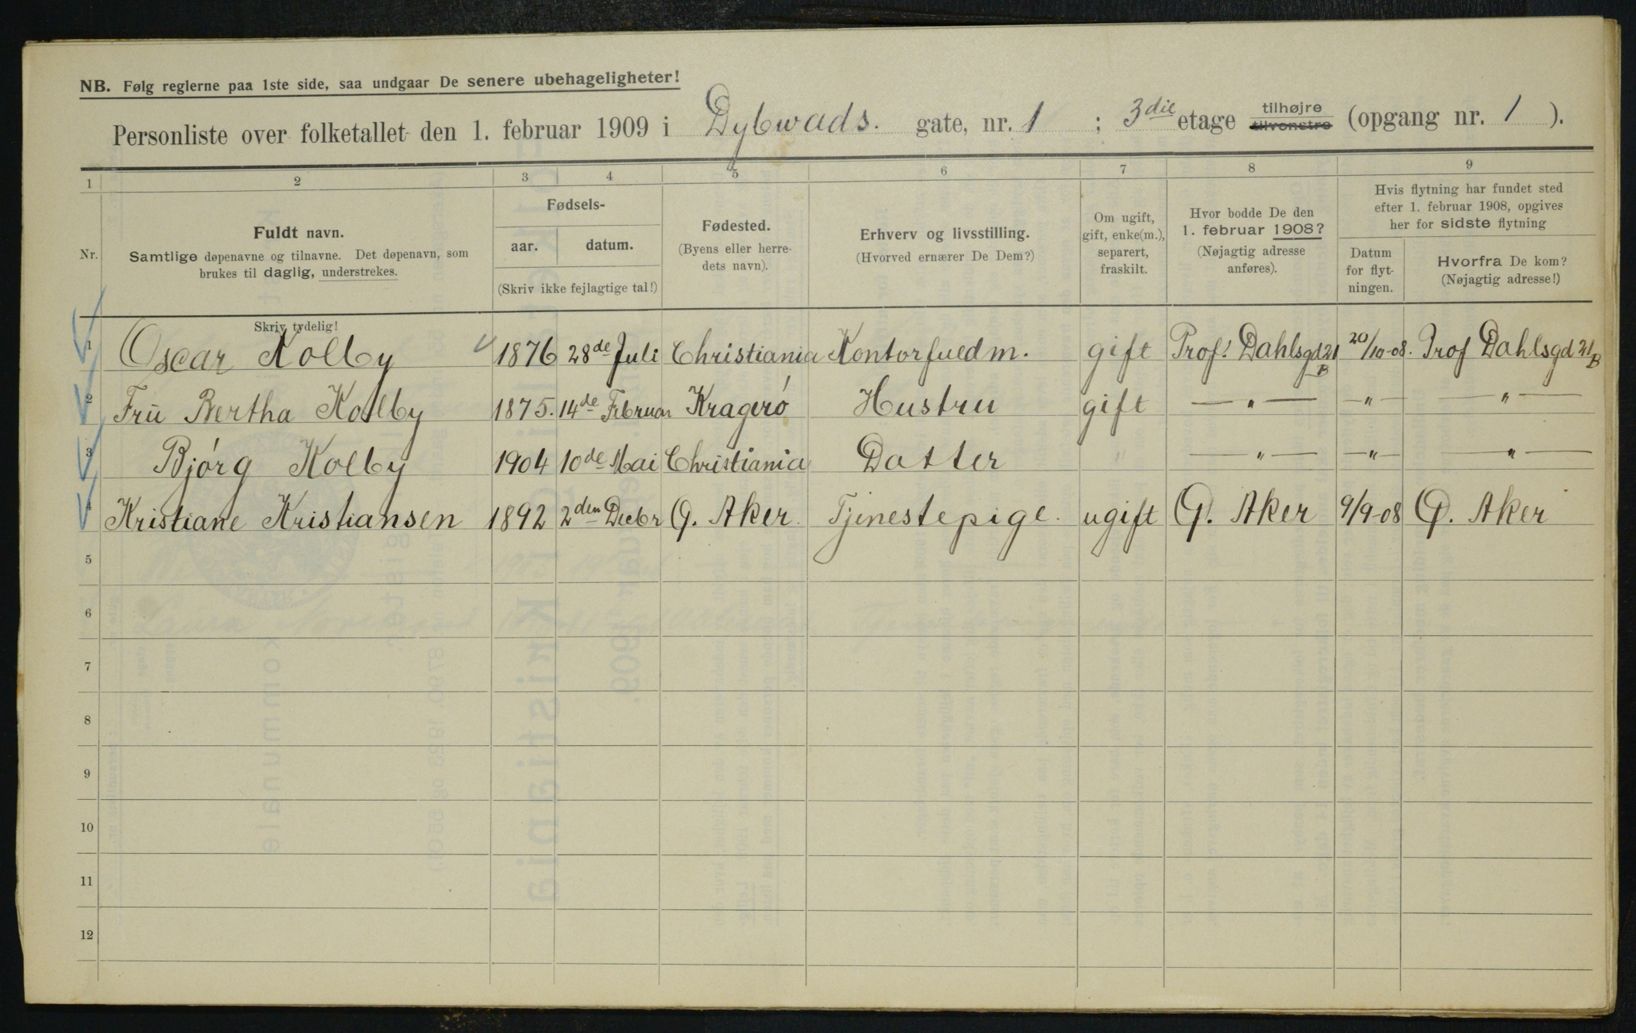 NB. Følg reglerne paa 1ste side, saa undgaar De senere ubehageligheter!
Personliste over folketallet den 1. februar 1909 i Dybwads. gate, nr. 1 ; 3die etage tilhøjre tilvenstre (opgang nr. 1 ).
1 2 3 4 5 6 7 8 9
Nr. Fuldt navn. Samtlige døpenavne og tilnavne. Det døpenavn, som brukes til daglig, understrekes. Fødsels- aar. datum. (Skriv ikke fejlagtige tal!) Fødested. (Byens eller herredets navn). Erhverv og livsstilling. (Hvorved ernærer De Dem?) Om ugift, gift, enke(m.), separert, fraskilt. Hvor bodde De den 1. februar 1908? (Nøjagtig adresse anføres). Hvis flytning har fundet sted efter 1. februar 1908, opgives her for sidste flytning Datum for flytningen. Hvorfra De kom? (Nøjagtig adresse!)
Skriv tydelig!
1 Oscar Kolby 1876 28de Juli Christiania Kontorfuldm. gift Prof. Dahlsgd 21 B 20/10-08. Prof Dahlsgd 21 B
2 Fru Bertha Kolby 1875. 14de Februar Kragerø Hustru gift — " — — " — — " —
3 Bjørg Kolby 1904 10de Mai Christiania Datter " — " — — " — — " —
4 Kristiane Kristiansen 1892 2den Decbr Ø. Aker. Tjenestepige. ugift Ø. Aker 9/9-08 Ø. Aker
5
6
7
8
9
10
11
12